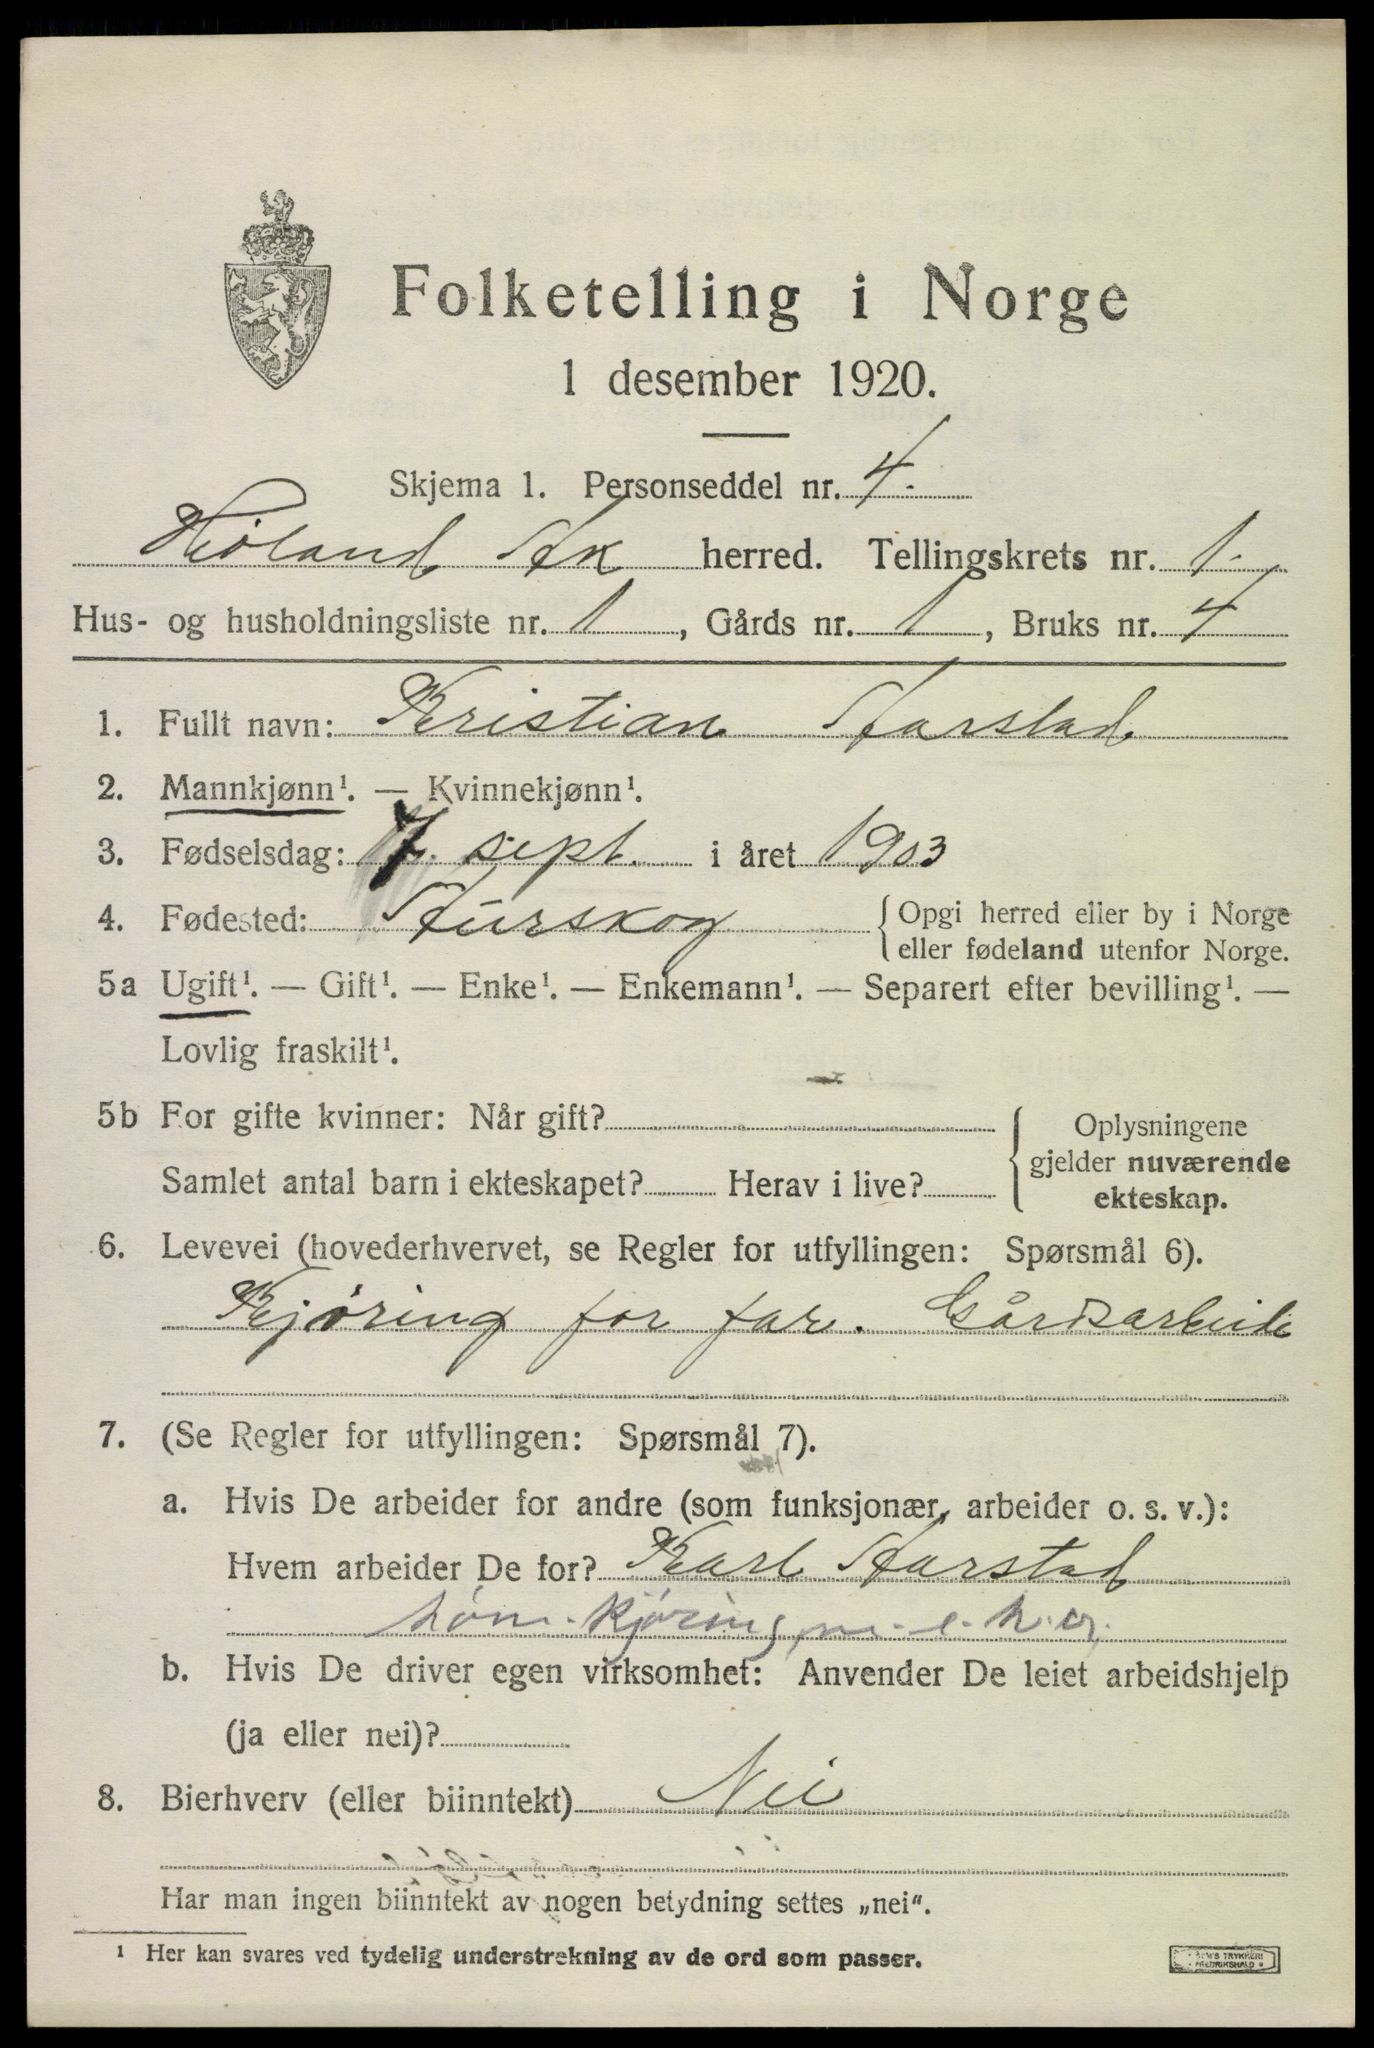 Folketelling i Norge
1 desember 1920.
Skjema 1. Personseddel nr. 4.
Høland Ak herred. Tellingskrets nr. 1.
Hus- og husholdningsliste nr. 1, Gårds nr. 1, Bruks nr. 4
1. Fullt navn: Kristian Harstad
2. Mannkjønn¹. — Kvinnekjønn¹.
3. Fødselsdag: 7. sept. i året 1903
4. Fødested: Aurskog { Opgi herred eller by i Norge
eller fødeland utenfor Norge.
5a Ugift¹. — Gift¹. — Enke¹. — Enkemann¹. — Separert efter bevilling¹. —
Lovlig fraskilt¹.
5b For gifte kvinner: Når gift?
Samlet antal barn i ekteskapet? Herav i live?
{ Oplysningene
gjelder nuværende
ekteskap.
6. Levevei (hovederhvervet, se Regler for utfyllingen: Spørsmål 6).
Kjøring for far. Gårdsarbeide
7. (Se Regler for utfyllingen: Spørsmål 7).
a. Hvis De arbeider for andre (som funksjonær, arbeider o. s. v.):
Hvem arbeider De for? Karl Harstad
tøm. kjøring m. e. h. o.
b. Hvis De driver egen virksomhet: Anvender De leiet arbeidshjelp
(ja eller nei)?
8. Bierhverv (eller biinntekt) Nei
Har man ingen biinntekt av nogen betydning settes „nei".
¹ Her kan svares ved tydelig understrekning av de ord som passer.
TRYKKERI
FREDRIKSHALD